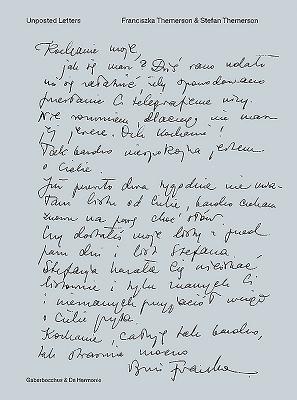 Unposted Letters Franciszka Themerson & Stefan Themerson
Kochanie moje,
jak się masz? Dziś rano udało
mi się załatwić, żeby spowodowano
przesłanie Ci telegraficzne wizy.
Nie rozumiem, dlaczego nie masz
jej jeszcze. Och kochanie!
Tak bardzo niespokojna jestem
o Ciebie.
Już prawie dwa tygodnie nie mia-
łam listu od Ciebie, bardzo czekam
znowu na parę choć słów.
Czy dostałeś moje listy z przed
paru dni i list Stefana,
Stefania kazała Cię uściskać,
i tylu znanych Ci
i nieznanych przyjaciół wciąż
o Ciebie pyta.
Kochanie, całuję tak bardzo,
tak strasznie mocno
Franka.
Gaberbocchus & De Harmonie